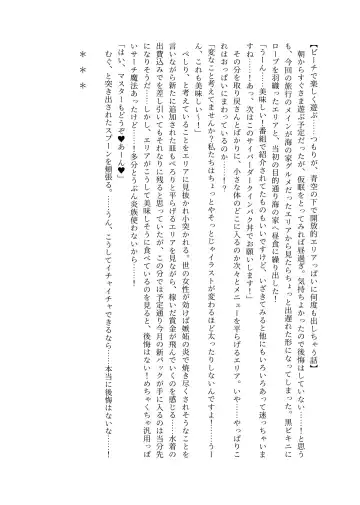 【ビーチで楽しく遊ぶ……つもりが、青空の下で開放的エリアっぱいに何度も出しちゃう話】
　朝からすぐさま遊ぶ予定だったが、仮眠をとってみれば昼過ぎ。気持ちよかったので後悔はしていない……！と思う
も、今回の旅行のメインが海の家グルメだったエリアから見たらちょっと出遅れた形になってしまった。黒ビキニに
ローブを羽織ったエリアと、当初の目的通り海の家へ昼食に繰り出した！
「うーん……美味しい！番組で紹介されてたものもいいですけど、いざきてみると他にもいろいろあって迷っちゃいま
すね……！あっ、次はこのサイバーダークインパクト丼でお願いします！」
　その分を取り戻さんとばかりに、小さな体のどこに入るのか次々とメニューを平らげるエリア。いや……やっぱりこ
れはおっぱいに貯まっているのか……！？
「変なこと考えてませんか？私たちはちょっとやそっとじゃイラストが変わるほど太ったりしないんですよ！……うー
ん、これも美味しいー！」
　ぺしり、と考えていることをエリアに見抜かれ小突かれる。世の女性が効けば嫉妬の炎で焼き尽くされそうなことを
言いながら新たに追加された頼もぺろりと平らげるエリアを見ながら、稼いだ賞金が飛んでいくのを感じる……水着の
出費込みでも差し引いてもそれなりに残ると思っていたが、この分では予定通り今月の新パックが手に入るのは当分先
になりそうだ……しかし、エリアがこうして美味しそうに食べているのを見ると、後悔はない！めちゃくちゃ汎用っぽ
いサーチ魔法あったけど……！多分とうぶん炎族使わないから……！
「はい、マスターもどうぞ♥あーん♥」
　むぐ、と突き出されたスプーンを頬張る。……うん、こうしてイチャイチャできるなら……本当に後悔はないな……！
＊　＊　＊